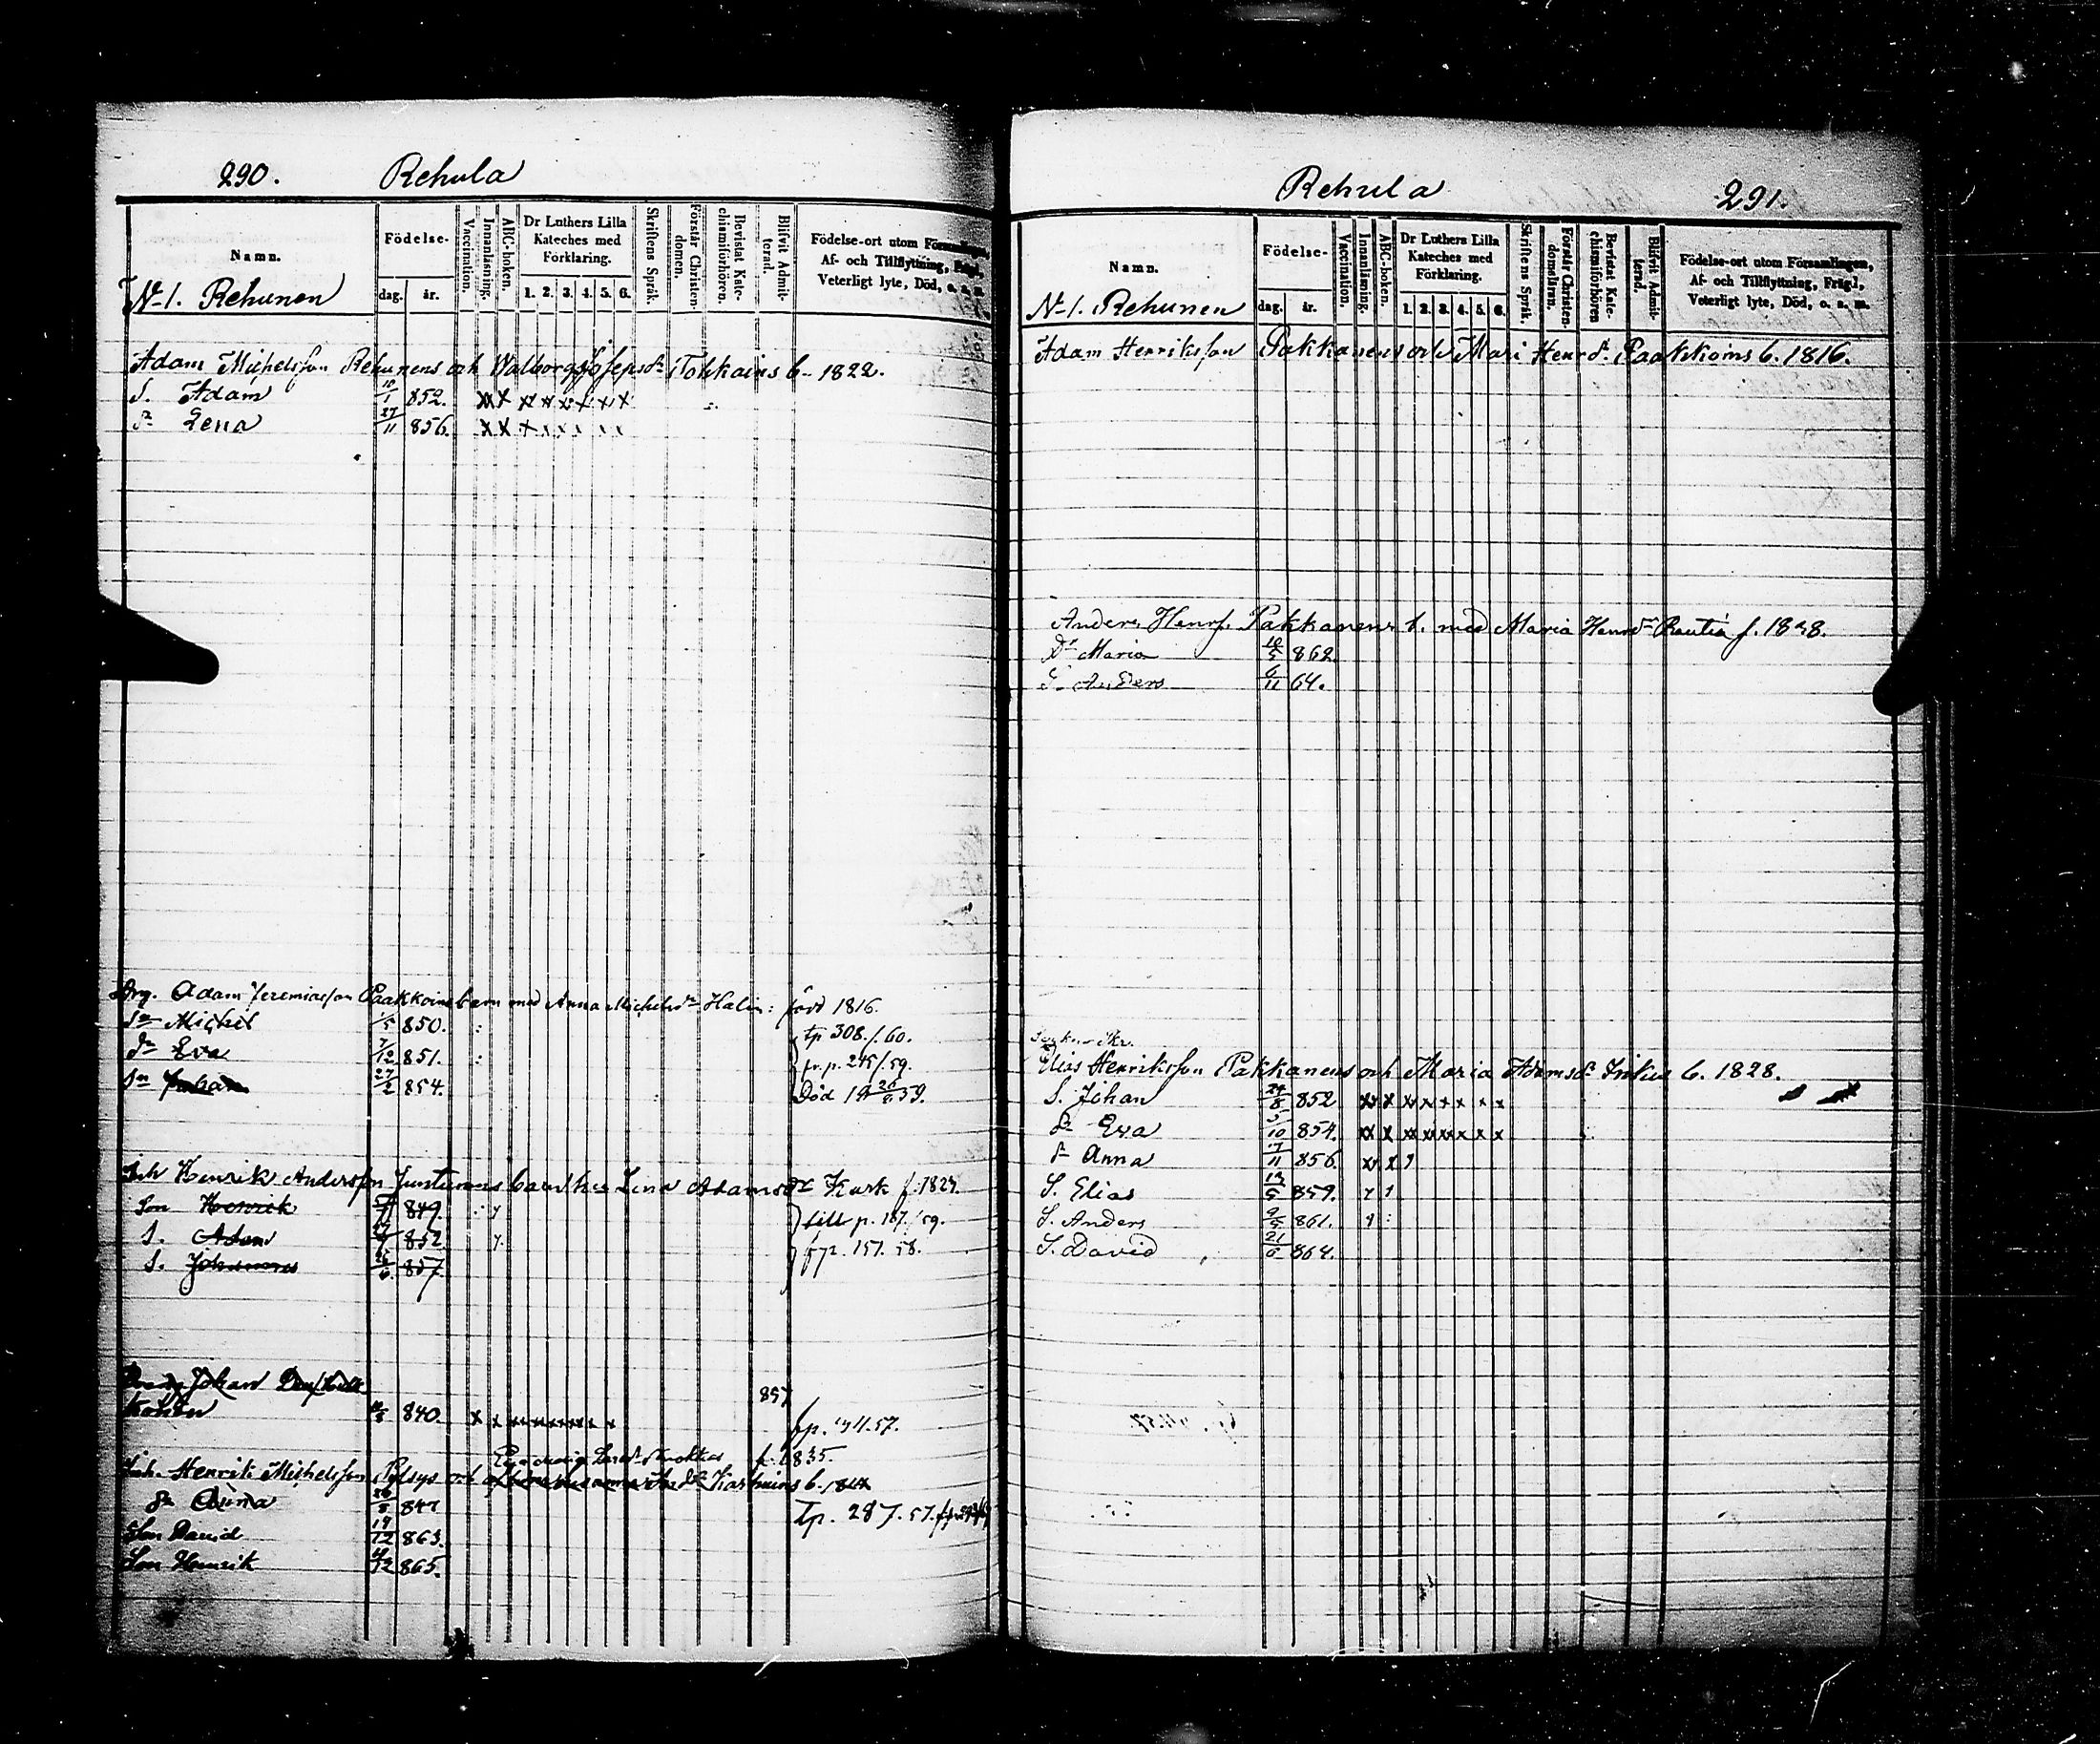 290. Rehula
Namn.
Födelse-
dag. år.
Vaccination.
Innanläsning.
ABC-boken.
Dr Luthers Lilla Kateches med Förklaring.
1. 2. 3. 4. 5. 6.
Skriftens Språk.
Förstår Christendomen.
Bevistat Katechismiförhören.
Blifvit Admitterad.
Födelse-ort utom Församlingen,
Af- och Tillflyttning, Frägd,
Veterligt lyte, Död, o. s. m.
N-1. Rehunen
Adam Michelsson Rehunens och Walborg Josepsdr Tohkains b. 1822.
S. Adam 10/1 852. x x x x x x x x
dr Lena 27/11 856. x x x x x x x x
Adam Jeremiasson Paakkoins barn med Anna Michelsdr Halin: född 1816.
Sn Michel /5 850. tp 308./.60.
dr Eva 7/12 851. fr. p. 245/.59.
Sn Johan 27/2 854. Död 59.
Inh Henrik Andersson barn Lena Adamsdr Kurk f. 1824.
Son Henrik 849. till p. 187./59.
S. Adam 852. fp. 151. 58.
S. Johannes 857.
Johan
857
840. x x x x x x x x fp. 57.
f. 1835.
Inh. Henrik Michelsson och b.
dr Anna 847 Tp. 287. 57.
Son David 19/12 863.
Son Henrik 4/12 865.
Rehula 291.
Namn.
Födelse-
dag. år.
Vaccination.
Innanläsning.
ABC-boken.
Dr Luthers Lilla Kateches med Förklaring.
1. 2. 3. 4. 5. 6.
Skriftens Språk.
Förstår Christendomsläran.
Bevistat Katechismiförhören
Blifvit Admitterad.
Födelse-ort utom Församlingen,
Af- och Tillflyttning, Frägd,
Veterligt lyte, Död, o. s. m.
N-1. Rehunen
Adam Henriksson Pakkanens och Mari Henrdr Paakkoins b. 1816.
Anders Henrs. Pakkanens b. med Maria Henrdr Rautia f. 1838.
Dr Maria 10/5 862
S. Anders 6/11 64.
Elias Henriksson Pakkanens och Maria Adamsdr Inkie b. 1828.
S. Johan 24/8 852 x x x x x x x x
dr Eva 5/10 854. x x x x x x x x
dr Anna 17/11 856. x x
S. Elias 13/5 859.
S. Anders 9/5 861.
S. David 21/6 864.